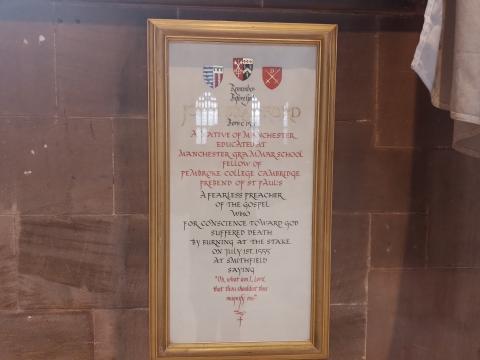 Remember
Before God
JOHN BRADFORD
Born c.
A NATIVE OF MANCHESTER
EDUCATED AT
MANCHESTER GRAMMAR SCHOOL
FELLOW OF
PEMBROKE COLLEGE CAMBRIDGE
PREBEND OF ST PAUL'S
A FEARLESS PREACHER
OF THE GOSPEL
WHO
FOR CONSCIENCE TOWARD GOD
SUFFERED DEATH
BY BURNING AT THE STAKE
ON JULY 1ST, 1555
AT SMITHFIELD
SAYING
"Oh, what am I, Lord,
that thou shouldst thus
magnify me"